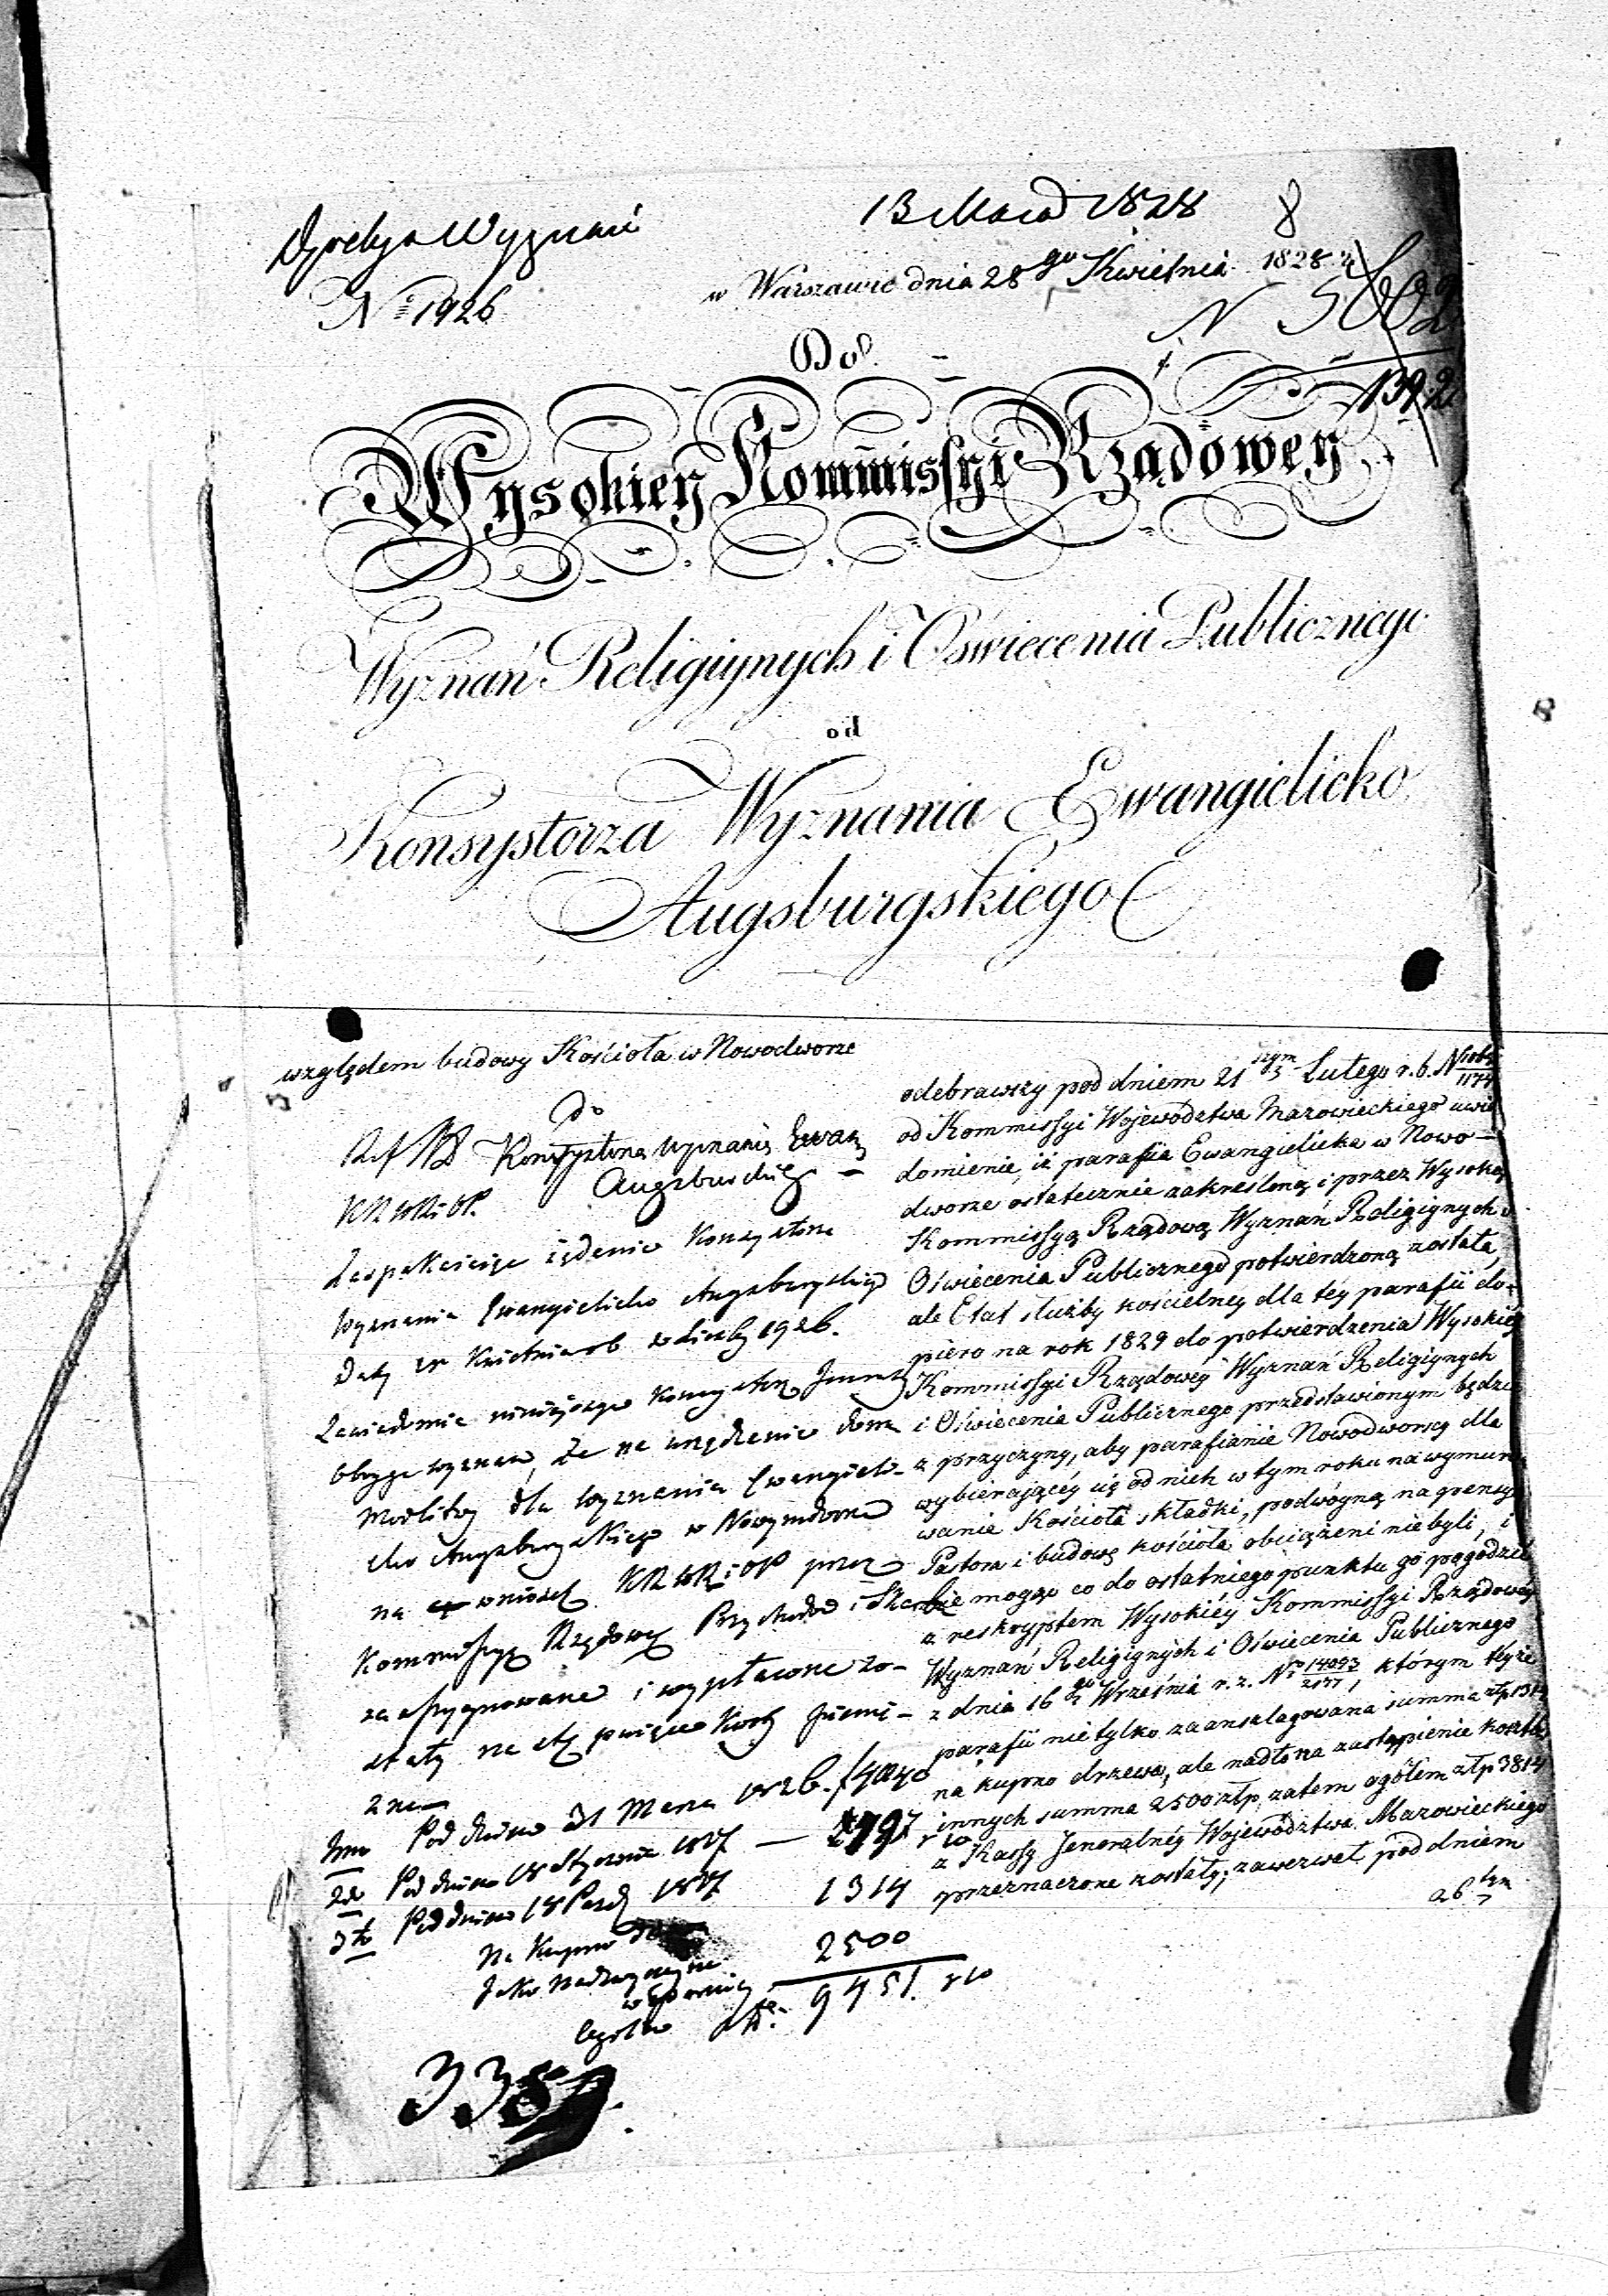 13 Maia 1828
8
Wyznań
№ 1926
w Warszawie dnia 28go Kwietnia 1828 r.
N
1392
Do
Wysokiey Kommissyi Rządowey
Wyznań Religiynych i Oświecenia Publicznego
od
Konsystorza Wyznania Ewangielicko
Augsburgskiego
względem budowy Kościoła w Nowodworze
do
Konsystorza Wyznania Ewang
Augsburskieg
KRWRiOP.
żądenie Konsystorza
Wyznania Ewangielicko Augsburgskiego
Daty Kwietnia rb z Liczby 1926.
Zawiadamia ninieyszym Konsystorz
wyznań, że na urządzenie domu
Modlitwy dla wyznania Ewangieli-
cko Augsburgskiego w Nowymdworze
na wniosek KRWRiOP przez
Kommissyę Rządową Przychodów i Skarbu
zaassygnowane i wypłacone zo-
stały na
2 na
1mo Pod dniem 31 Marca 1826.
2do Pod dniem 18 Stycznia 1827 —
3tio Pod dniem 18 Paźd 1827 1314
Na Kupno
Jako nadzwyczayne
wsparcie 2500
Ogółem 9451.
odebrawszy pod dniem 21szym Lutego r. b. N
od Kommissyi Województwa Mazowieckiego uwia
domienie, iż parafia Ewangielicka w Nowo-
dworze ostatecznie zakreśloną i przez Wysoką
Kommissyą Rządową Wyznań Religiynych i
Oświecenia Publicznego potwierdzoną została,
ale Etat służby kościelney dla téy parafii do-
piero na rok 1829 do potwierdzenia Wysokiéy
Kommissyi Rządowéy Wyznań Religiynych
i Oświecenia Publicznego przedstawionym będzie
z przyczyny, aby parafianie Nowodworscy dla
wybieraiącéy się od nich w tym roku na wymuro
wanie Kościoła składki, podwóyną na pensyą
Pastora i budowę kościoła obciążeni niebyli, i
nie mogąc co do ostatniego punktu go pogodzić
z reskryptem Wysokiéy Kommissyi Rządowéy
Wyznań Religiynych i Oświecenia Publicznego
z dnia 16go Września r. z. № 14093/2177, którym téyże
parafii nietylko zaanszlagowana summa złp 1314
na kupno drzewa, ale nadto na zastąpienie kosztów
innych summa 2500 złp, zatem ogółem złp 3814
z Kassy Jeneralnéy Województwa Mazowieckiego
przeznaczone zostały; zawezwał pod dniem